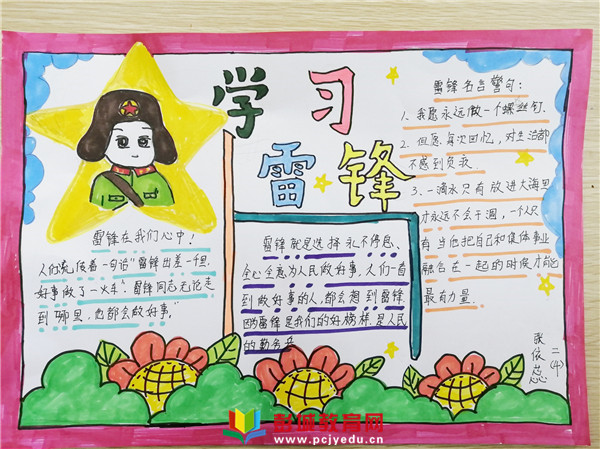 学习
雷锋
雷锋在我们心中！
人们流传着一句话“雷锋出差一千里
好事做了一火车”雷锋同志无论走
到哪里，也都会做好事。”
雷锋就是选择永不停息、
全心全意为人民做好事，人们一看
到做好事的人，都会想到雷锋
因为雷锋是我们的好榜样，是人民
的勤务兵
雷锋名言警句：
1. 我愿永远做一个螺丝钉.
2. 但愿每次回忆，对生活都
不感到负疚.
3. 一滴水只有放进大海里
才永远不会干涸，一个人只
有当他把自己和集体事业
融合在一起的时候才能
最有力量.
二(4)
张依蕊
彭城教育网
www.pcjyedu.cn